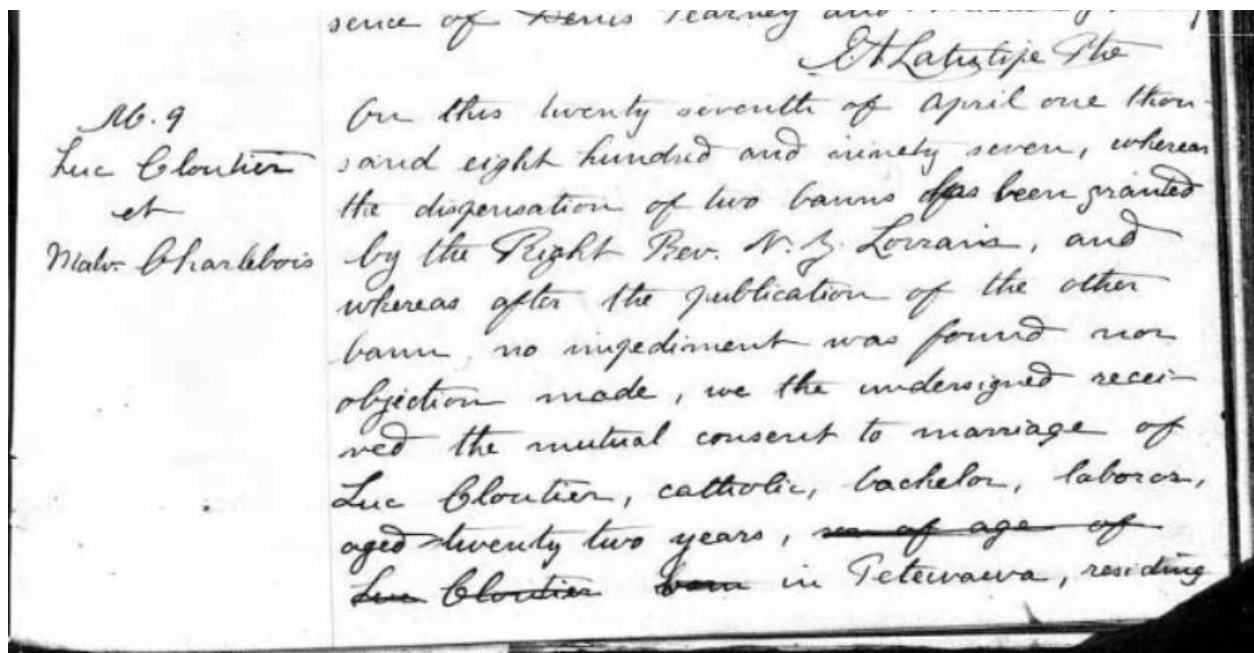 sence of Denis Kearney and
M. 9
Luc Cloutier
et
Malv. Charlebois
On this twenty seventh of April one thou-
sand eight hundred and ninety seven, whereas
the dispensation of two banns has been granted
by the Right Rev. N. Z. Lorrain, and
whereas after the publication of the other
bann, no impediment was found nor
objection made, we the undersigned recei-
ved the mutual consent to marriage of
Luc Cloutier, catholic, bachelor, laboror,
aged twenty two years, son of age of
Luc Cloutier born in Petewawa, residing